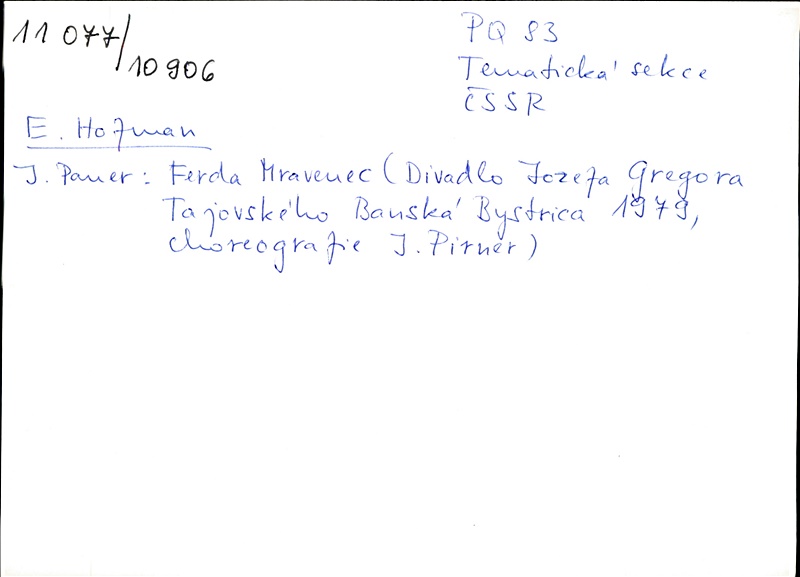 11 077/10 906
PQ 83
Tematická sekce
ČSSR
E. Hofman
J. Pauer: Ferda Mravenec (Divadlo Jozefa Gregora
Tajovského Banská Bystrica 1979,
choreografie J. Pirner)